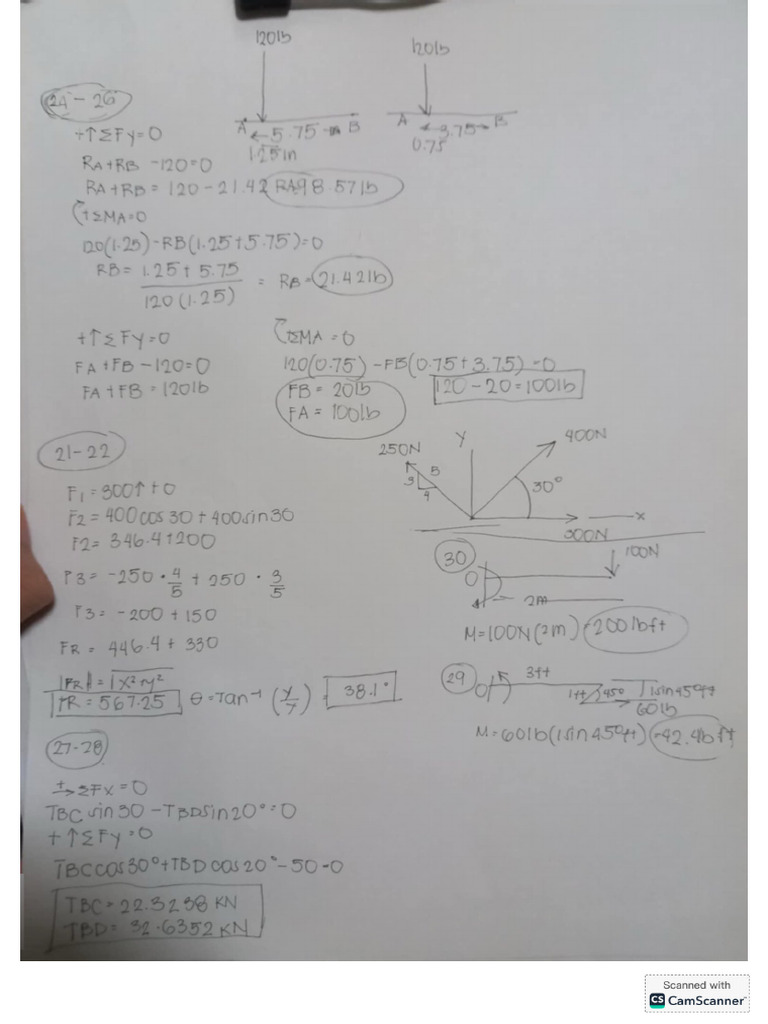 120lb
120lb
24-26
A 5.75 in B
1.25in
A 3.75 B
0.75
+↑ΣFy=0
RA+RB -120=0
RA+RB = 120-21.42 RA98.57lb
+ΣMA=0
120(1.25)-RB(1.25+5.75)=0
RB= 1.25+5.75 / 120(1.25) = RB=21.42lb
+↑ΣFy=0
FA+FB-120=0
FA+FB=120lb
+ΣMA=0
120(0.75)-FB(0.75+3.75)=0
FB=20lb
120-20=100lb
FA=100lb
21-22
250N
Y
400N
5
3
4
30°
x
300N
F1=300↑+0
F2=400cos30+400sin30
F2=346.4+200
F3=-250·4/5+250·3/5
F3=-200+150
FR=446.4+330
FR=567.25
θ=Tan⁻¹
38.1°
30
100N
O
2m
M=100N(2m)=200lbft
29
3ft
O
1ft
450
1sin45°ft
60lb
M=60lb(1sin45°ft)
27-28
+→ΣFx=0
TBC sin30-TBDsin20°=0
+↑ΣFy=0
TBCcos30°+TBDcos20°-50=0
TBC=22.3238KN
TBD=32.6352KN
Scanned with
CS CamScanner